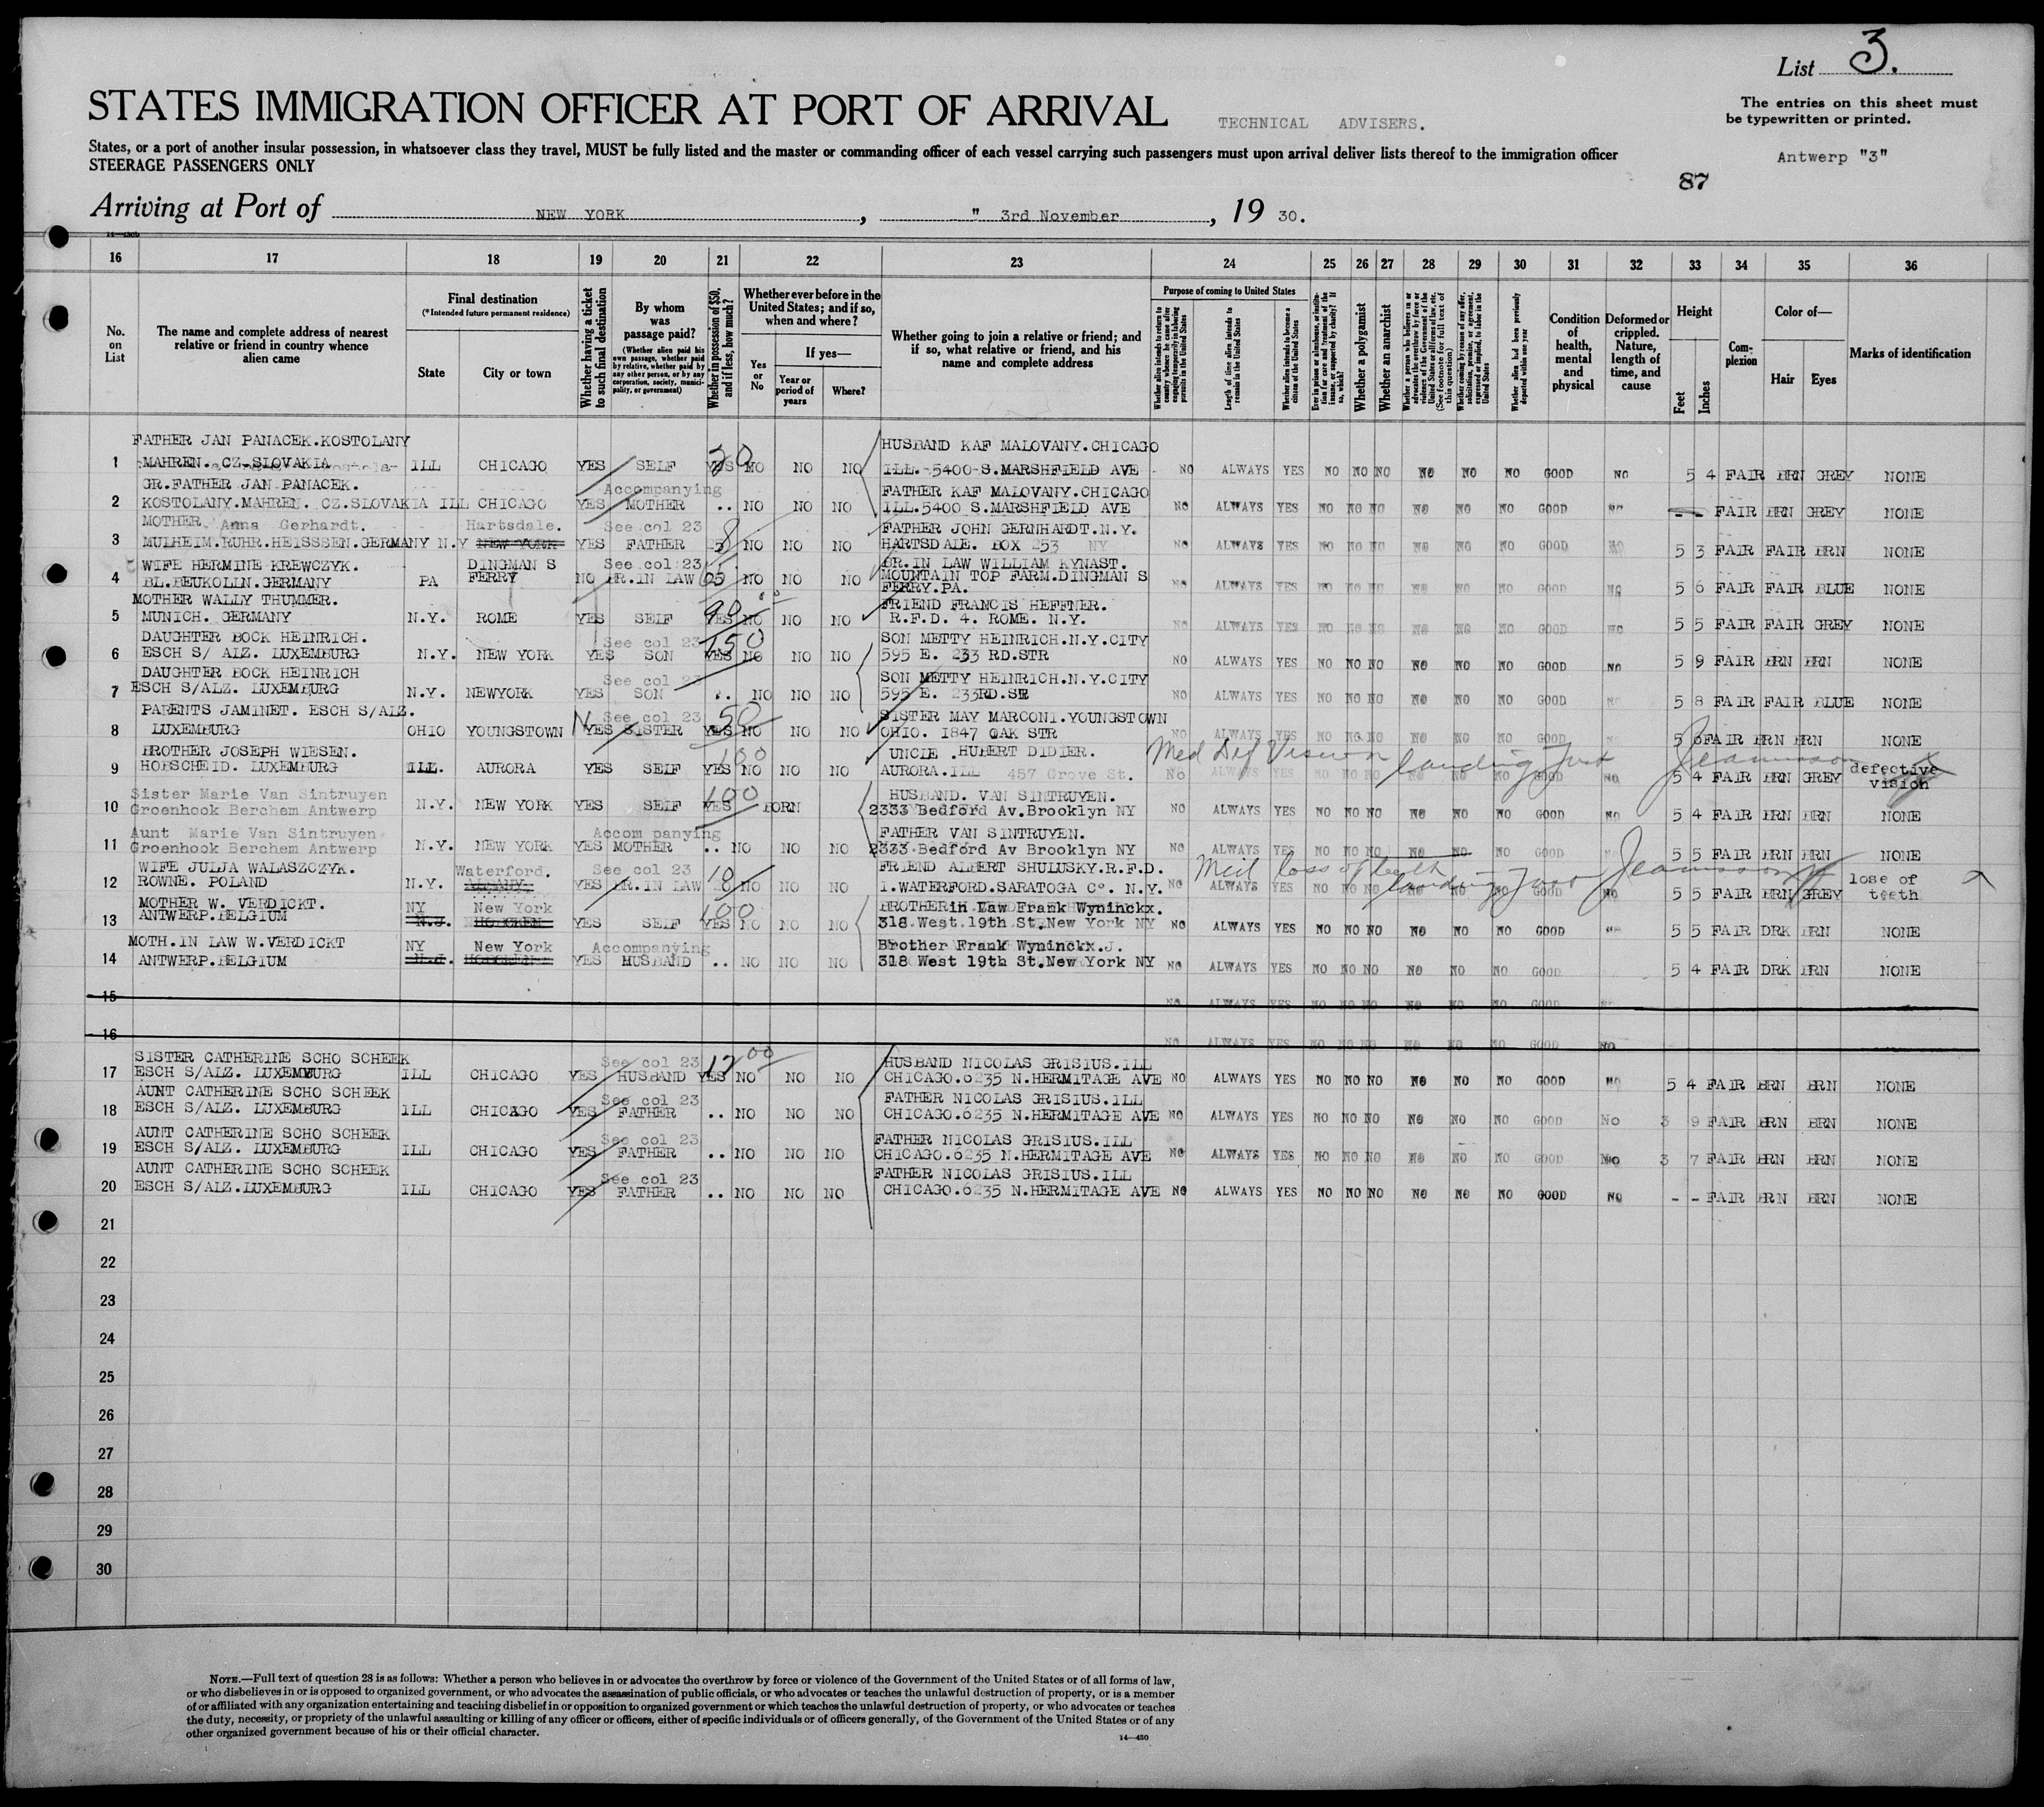 List 3.
The entries on this sheet must
be typewritten or printed.
STATES IMMIGRATION OFFICER AT PORT OF ARRIVAL TECHNICAL ADVISERS.
States, or a port of another insular possession, in whatsoever class they travel, MUST be fully listed and the master or commanding officer of each vessel carrying such passengers must upon arrival deliver lists thereof to the immigration officer
STEERAGE PASSENGERS ONLY
Antwerp "3"
87
Arriving at Port of NEW YORK, " 3rd November, 19 30.
16 17 18 19 20 21 22 23 24 25 26 27 28 29 30 31 32 33 34 35 36
No. on List
The name and complete address of nearest relative or friend in country whence alien came
Final destination (*Intended future permanent residence)
State
City or town
Whether having a ticket to such final destination
By whom was passage paid?
(Whether alien paid his own passage, whether paid by relative, whether paid by any other person, or by any corporation, society, municipality, or government)
Whether in possession of $50, and if less, how much?
Whether ever before in the United States; and if so, when and where?
Yes or No
If yes—
Year or period of years
Where?
Whether going to join a relative or friend; and if so, what relative or friend, and his name and complete address
Purpose of coming to United States
Whether alien intends to return to country whence he came after engaging temporarily in laboring pursuits in the United States
Length of time alien intends to remain in the United States
Whether alien intends to become a citizen of the United States
Ever in prison or almshouse, or institution for care and treatment of the insane, or supported by charity? If so, which?
Whether a polygamist
Whether an anarchist
Whether a person who believes in or advocates the overthrow by force or violence of the Government of the United States or all forms of law, etc. (See footnote for full text of this question)
Whether coming by reason of any offer, solicitation, promise, or agreement, expressed or implied, to labor in the United States
Whether alien had been previously deported within one year
Condition of health, mental and physical
Deformed or crippled. Nature, length of time, and cause
Height
Feet
Inches
Complexion
Color of—
Hair
Eyes
Marks of identification
FATHER JAN PANACEK.KOSTOLANY HUSBAND KAF MALOVANY.CHICAGO
1 MAHREN. CZ.SLOVAKIA ILL CHICAGO YES SELF YES 20 NO NO NO ILL. 5400 S.MARSHFIELD AVE NO ALWAYS YES NO NO NO NO NO NO GOOD NO 5 4 FAIR BRN GREY NONE
GR.FATHER JAN PANACEK. Accompanying FATHER KAF MALOVANY.CHICAGO
2 KOSTOLANY.MAHREN. CZ.SLOVAKIA ILL CHICAGO YES MOTHER .. NO NO NO ILL.5400 S.MARSHFIELD AVE NO ALWAYS YES NO NO NO NO NO NO GOOD NO - - FAIR BRN GREY NONE
MOTHER Anna Gerhardt. Hartsdale. See col 23 FATHER JOHN GERNHARDT.N.Y.
3 MULHEIM.RUHR.HEISSSEN.GERMANY N.Y NEW YORK YES FATHER 8 NO NO NO HARTSDALE. BOX 253 NY NO ALWAYS YES NO NO NO NO NO NO GOOD NO 5 3 FAIR FAIR BRN NONE
WIFE HERMINE KREWCZYK. DINGMAN S See col 23 BR.IN LAW WILLIAM KYNAST.
4 BL.BEUKOLLN.GERMANY PA FERRY NO BR.IN LAW NO NO NO MOUNTAIN TOP FARM.DINGMAN S
FERRY.PA. NO ALWAYS YES NO NO NO NO NO NO GOOD NO 5 6 FAIR FAIR BLUE NONE
MOTHER WALLY THUMMER. FRIEND FRANCIS HEFFNER.
5 MUNICH. GERMANY N.Y. ROME YES SELF YES 90 NO NO NO R.F.D. 4. ROME. N.Y. NO ALWAYS YES NO NO NO NO NO NO GOOD NO 5 5 FAIR FAIR GREY NONE
DAUGHTER BOCK HEINRICH. See col 23 SON METTY HEINRICH.N.Y.CITY
6 ESCH S/ ALZ. LUXEMBURG N.Y. NEW YORK YES SON YES 150 NO NO NO 595 E. 233 RD.STR NO ALWAYS YES NO NO NO NO NO NO GOOD NO 5 9 FAIR BRN BRN NONE
DAUGHTER BOCK HEINRICH See col 23 SON METTY HEINRICH.N.Y.CITY
7 ESCH S/ALZ. LUXEMBURG N.Y. NEWYORK YES SON .. NO NO NO 595 E. 233RD.STR NO ALWAYS YES NO NO NO NO NO NO GOOD NO 5 8 FAIR FAIR BLUE NONE
PARENTS JAMINET. ESCH S/ALZ. See col 23 SISTER MAY MARCONI.YOUNGSTOWN
8 LUXEMBURG OHIO YOUNGSTOWN YES SISTER YES 50 NO NO NO OHIO. 1847 OAK STR NO ALWAYS YES NO NO NO NO NO NO GOOD NO 5 6 FAIR BRN BRN NONE
BROTHER JOSEPH WIESEN. UNCLE .HUBERT DIDIER. Med Def Vision landing
9 HOBSCHEID. LUXEMBURG ILL. AURORA YES SELF YES 100 NO NO NO AURORA.ILL 457 Grove St. NO ALWAYS YES NO NO NO NO NO NO GOOD NO 5 4 FAIR BRN GREY defective vision
Sister Marie Van Sintruyen HUSBAND. VAN SINTRUYEN.
10 Groenhook Berchem Antwerp N.Y. NEW YORK YES SELF YES 100 BORN 2333 Bedford Av.Brooklyn NY NO ALWAYS YES NO NO NO NO NO NO GOOD NO 5 4 FAIR BRN BRN NONE
Aunt Marie Van Sintruyen Accom panying FATHER VAN SINTRUYEN.
11 Groenhook Berchem Antwerp N.Y. NEW YORK YES MOTHER .. NO NO NO 2333 Bedford Av Brooklyn NY NO ALWAYS YES NO NO NO NO NO NO GOOD 5 5 FAIR BRN BRN NONE
WIFE JULJA WALASZCZYK. Waterford. See col 23 FRIEND ALBERT SHULUSKY.R.F.D. loss of teeth landing
12 ROWNE. POLAND N.Y. ALBANY. YES BR.IN LAW 10 NO NO NO 1.WATERFORD.SARATOGA Co. N.Y. NO ALWAYS YES NO NO NO NO NO NO GOOD NO 5 5 FAIR BRN GREY lose of teeth
MOTHER W. VERDICKT. NY New York BROTHER in Law Frank Wyninckx.
13 ANTWERP.BELGIUM N.J. HOBOKEN YES SELF YES 100 NO NO NO 318 West 19th St.New York NY NO ALWAYS YES NO NO NO NO NO NO GOOD 5 5 FAIR DRK BRN NONE
MOTH.IN LAW W.VERDICKT NY New York Accompanying Brother Frank Wyninckx.J.
14 ANTWERP.BELGIUM N.J. HOBOKEN YES HUSBAND .. NO NO NO 318 West 19th St.New York NY NO ALWAYS YES NO NO NO NO NO NO GOOD 5 4 FAIR DRK BRN NONE
15 NO ALWAYS YES NO NO NO NO NO NO GOOD
16 NO ALWAYS YES NO NO NO NO NO NO GOOD NO
SISTER CATHERINE SCHO SCHEEK See col 23 HUSBAND NICOLAS GRISIUS.ILL
17 ESCH S/ALZ. LUXEMBURG ILL CHICAGO YES HUSBAND YES NO NO NO CHICAGO.6235 N.HERMITAGE AVE NO ALWAYS YES NO NO NO NO NO NO GOOD NO 5 4 FAIR BRN BRN NONE
AUNT CATHERINE SCHO SCHEEK See col 23 FATHER NICOLAS GRISIUS.ILL
18 ESCH S/ALZ. LUXEMBURG ILL CHICAGO YES FATHER .. NO NO NO CHICAGO.6235 N.HERMITAGE AVE NO ALWAYS YES NO NO NO NO NO NO GOOD No 3 9 FAIR BRN BRN NONE
AUNT CATHERINE SCHO SCHEEK See col 23 FATHER NICOLAS GRISIUS.ILL
19 ESCH S/ALZ. LUXEMBURG ILL CHICAGO YES FATHER .. NO NO NO CHICAGO.6235 N.HERMITAGE AVE NO ALWAYS YES NO NO NO NO NO NO GOOD No 3 7 FAIR BRN BRN NONE
AUNT CATHERINE SCHO SCHEEK See col 23 FATHER NICOLAS GRISIUS.ILL
20 ESCH S/ALZ.LUXEMBURG ILL CHICAGO YES FATHER .. NO NO NO CHICAGO.6235 N.HERMITAGE AVE NO ALWAYS YES NO NO NO NO NO NO GOOD NO - - FAIR BRN BRN NONE
21
22
23
24
25
26
27
28
29
30
NOTE.—Full text of question 28 is as follows: Whether a person who believes in or advocates the overthrow by force or violence of the Government of the United States or of all forms of law,
or who disbelieves in or is opposed to organized government, or who advocates the assassination of public officials, or who advocates or teaches the unlawful destruction of property, or is a member
of or affiliated with any organization entertaining and teaching disbelief in or opposition to organized government or which teaches the unlawful destruction of property, or who advocates or teaches
the duty, necessity, or propriety of the unlawful assaulting or killing of any officer or officers, either of specific individuals or of officers generally, of the Government of the United States or of any
other organized government because of his or their official character.
14—430